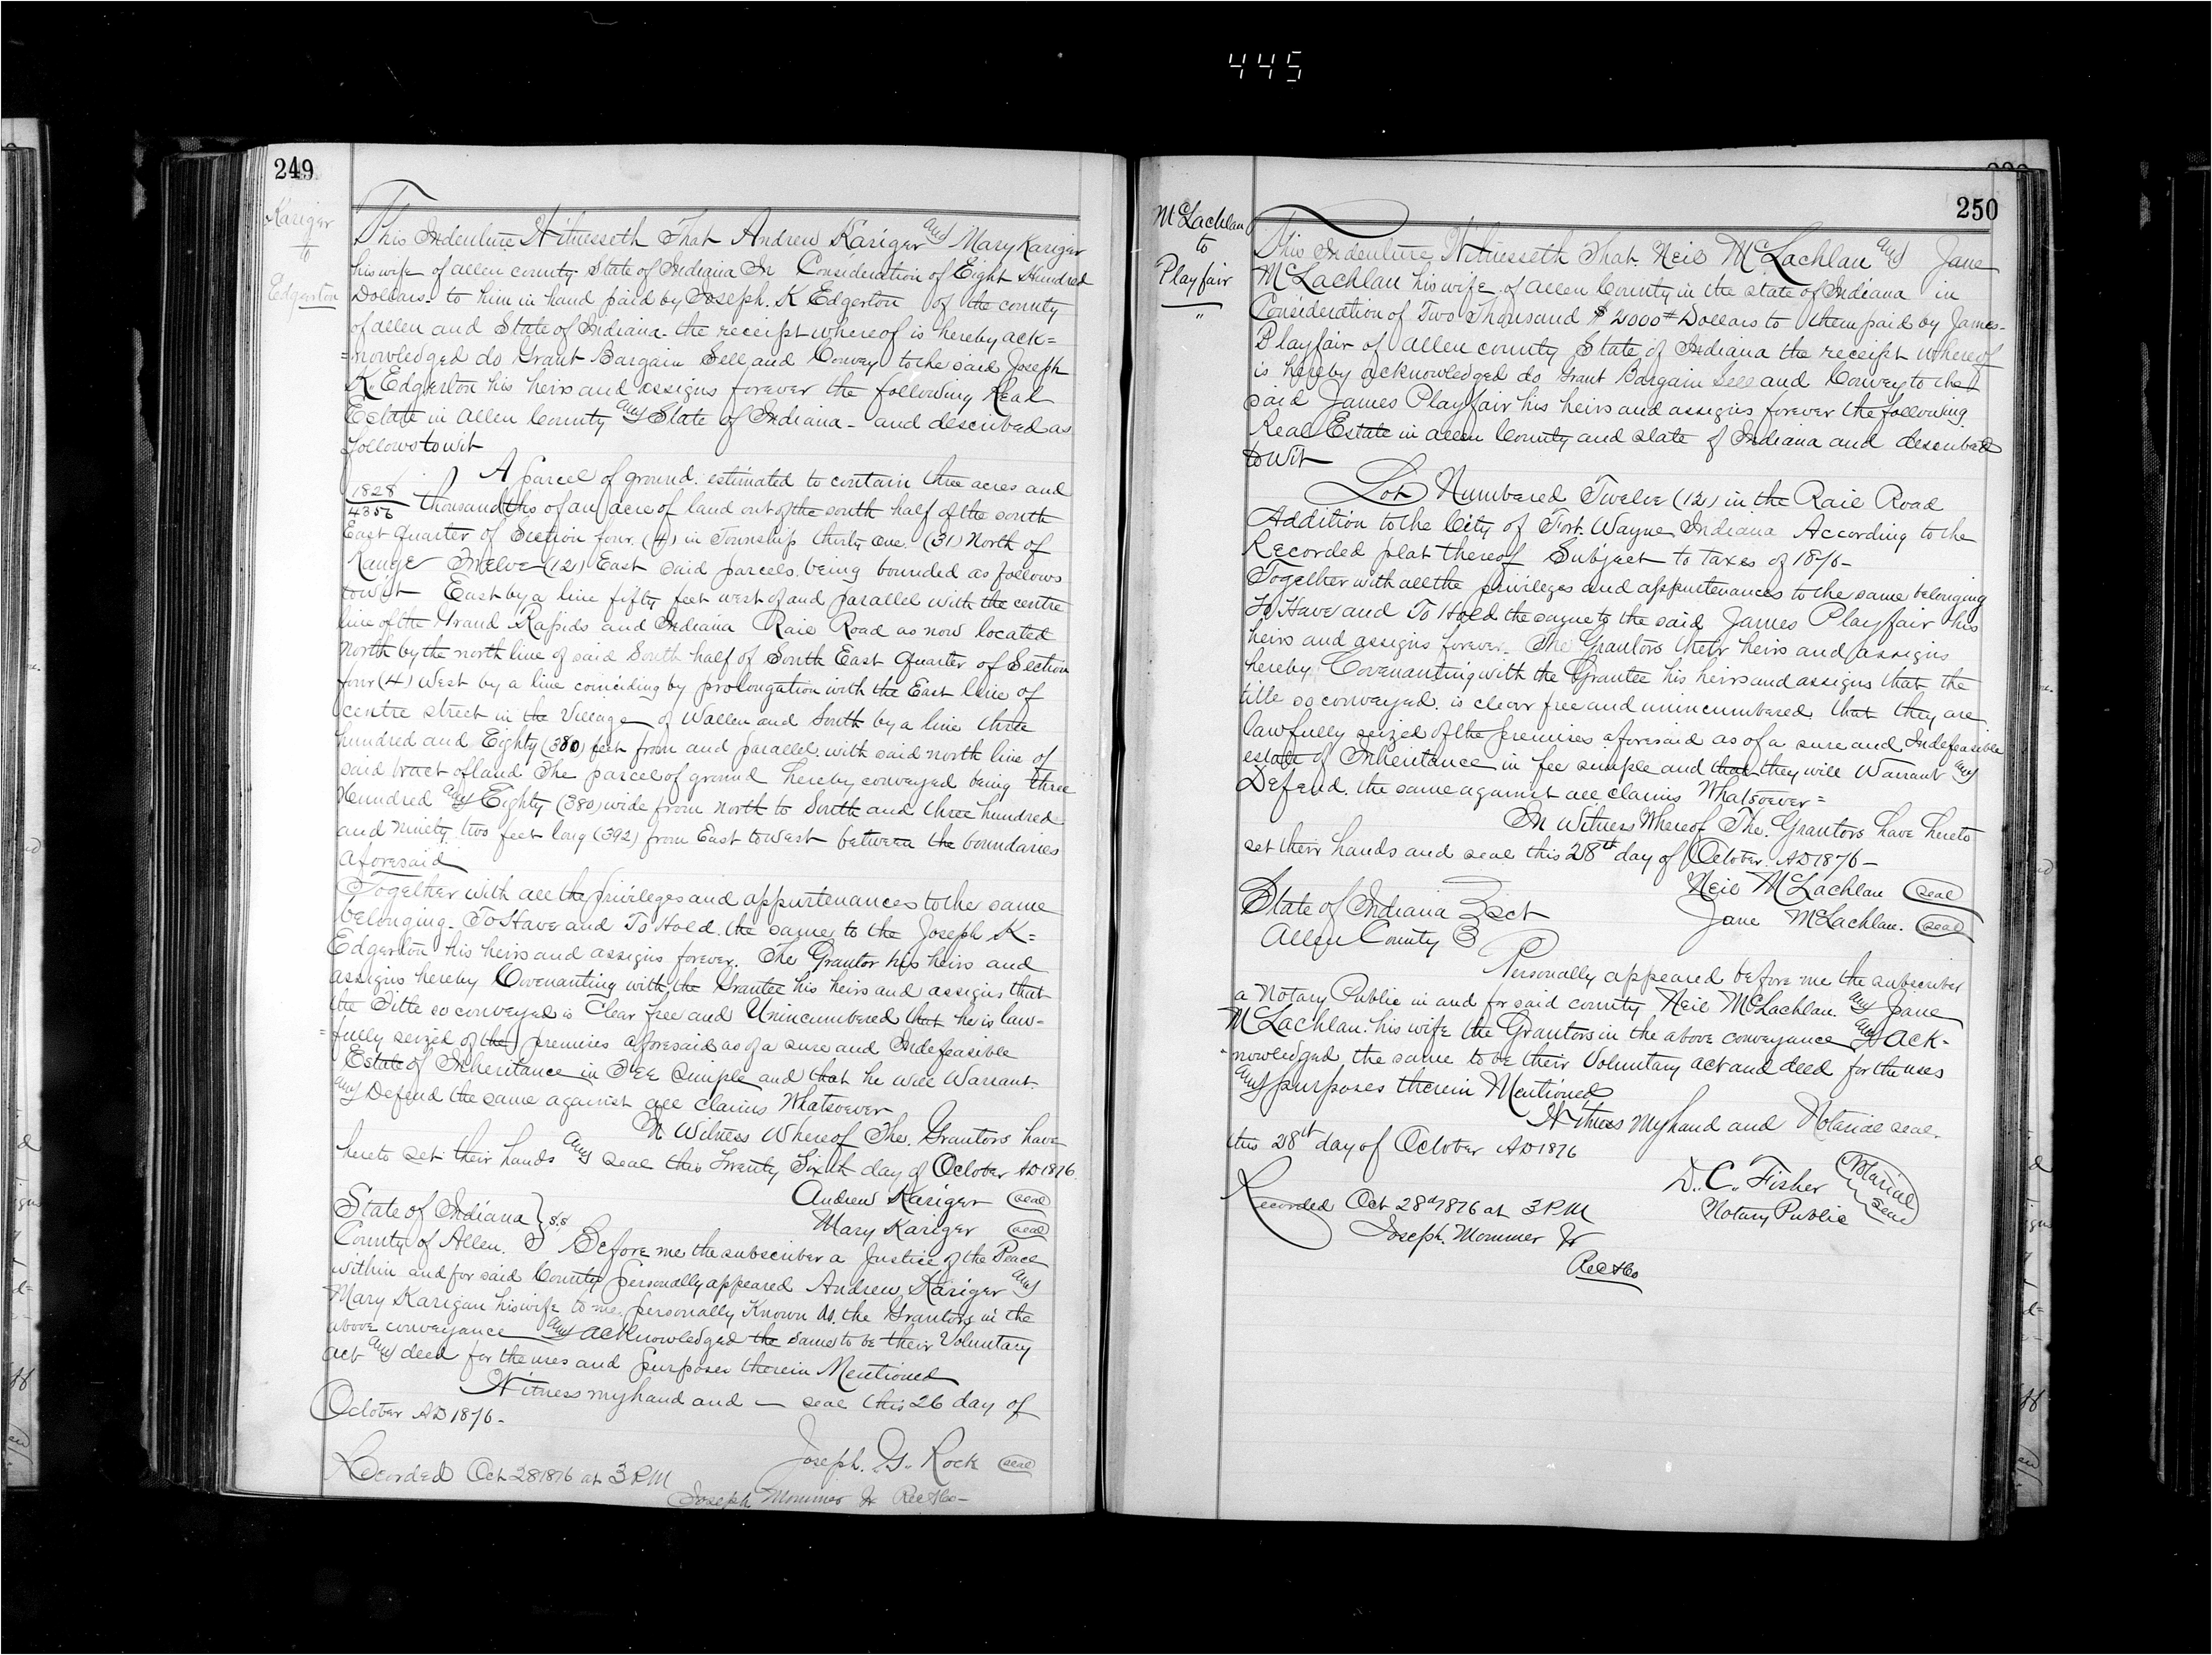 445
249
Kariger
to
Edgerton
This Indenture Witnesseth That Andrew Kariger and Mary Kariger
his wife of allen county State of Indiana In Consideration of Eight Hundred
Dollars. to him in hand paid by Joseph. K Edgerton of the county
of allen and State of Indiana. the receipt whereof is hereby ack=
=nowledged do Grant Bargain Sell and Convey to the said Joseph
K. Edgerton his heirs and assigns forever the following Real
Estate in Allen County and State of Indiana - and described as
follows to wit
A parcel of ground. estimated to contain three acres and
1828/4356 thousandths of an acre of land out of the south half of the south
East quarter of Section four. (4) in Township thirty one. (31) North of
Range Twelve (12) East said parcels. being bounded as follows
to wit East by a line fifty feet west of and parallel with the centre
line of the Grand Rapids and Indiana Rail Road as now located
North by the north line of said South half of South East Quarter of Section
four (4) West by a line coinciding by prolongation with the East line of
centre street in the Village of Wallen and South by a line three
hundred and Eighty (380) feet from and parallel with said north line of
said tract of land The parcel of ground hereby conveyed being three
Hundred and Eighty (380) wide from north to South and three hundred
and ninety two feet long (392) from East to West between the boundaries
aforesaid
Together with all the privileges and appurtenances to the same
belonging. To Have and To Hold. the same to the Joseph K=
Edgerton his heirs and assigns forever. The Grantor his heirs and
assigns hereby Covenanting with the Grantee his heirs and assigns that
the Title so conveyed is Clear free and Unincumbered that he is law-
=fully seized of the premises aforesaid as of a sure and Indefeasible
Estate of Inheritance in FEE Simple and that he will Warrant
and Defend the same against all claims Whatsoever
In Witness Whereof The. Grantors have
hereto set their hands and seal this Twenty Sixth day of October AD 1876
Andrew Kariger (seal)
Mary Kariger (seal)
State of Indiana } s,s
County of Allen. } Before me the subscriber a Justice of the Peace
within and for said County personally appeared Andrew Kariger and
Mary Karigan his wife to me personally Known As the Grantors in the
above conveyance and acknowledged the same to be their Voluntary
act and deed for the uses and purposes therein Mentioned
Witness my hand and — seal this 26 day of
October AD 1876-
Joseph. G. Rock (seal)
Recorded Oct 28 1876 at 3 PM
Joseph Mommer Jr Rec A Co-
250
McLachlan
to
Playfair
"
This Indenture Witnesseth That. Neil McLachlan and Jane
McLachlan his wife of Allen County in the state of Indiana in
Consideration of Two Thousand $2000 Dollars to them paid by James-
Playfair of allen county State of Indiana the receipt whereof
is hereby acknowledged do Grant Bargain Sell and Convey to the
said James Playfair his heirs and assigns forever the following
Real Estate in allen County and state of Indiana and described
to Wit
Lot Numbered Twelve (12) in the Rail Road
Addition to the City of Fort. Wayne Indiana According to the
Recorded plat thereof Subject to taxes of 1876-
Together with all the privileges and appurtenances to the same belonging
To Have and To Hold the same to the said James Playfair his
heirs and assigns forever. The Grantors their heirs and assigns
hereby Covenanting with the Grantee his heirs and assigns that the
title so conveyed. is clear free and unincumbered. that they are
lawfully seized of the premises aforesaid as of a sure and Indefeasible
estate of Inheritance in fee simple and that they will Warrant and
Defend. the same against all claims Whatsoever=
In Witness Whereof The. Grantors have hereto
set their hands and seal this 28th day of October. AD 1876-
Neil McLachlan (seal)
Jane McLachlan. (seal)
State of Indiana } sct
Allen County }
Personally appeared before me the subscriber
a Notary Public in and for said county Neil McLachlan. and Jane
McLachlan. his wife the Grantors in the above conveyance and ack-
-nowledged the same to be their Voluntary act and deed for the uses
and purposes therein Mentioned
Witness My hand and Notarial seal.
this 28th day of October AD 1876
D. C. Fisher (Notarial
Notary Public Seal)
Recorded Oct 28th 1876 at 3 PM
Joseph. Mommer Jr
Rec A Co